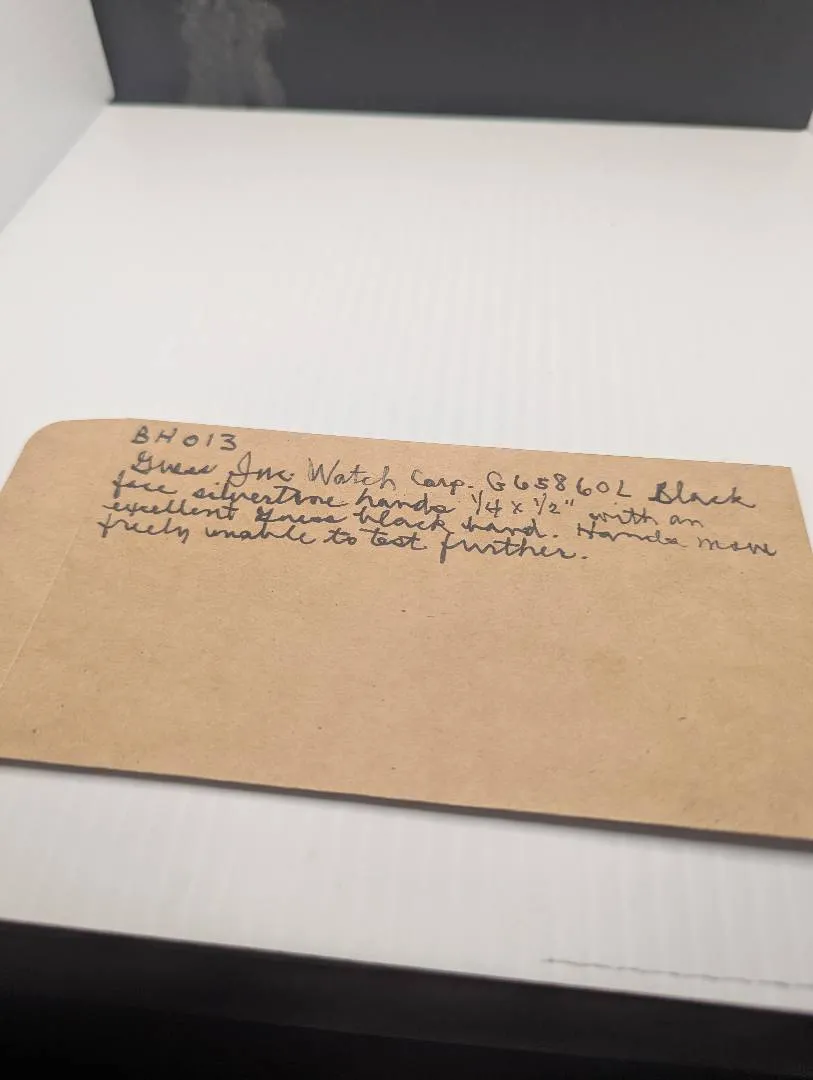 BH013
Guess Inc. Watch Corp. G65860L Black
face silvertone hands 1/4 x 1/2" with an
excellent Guess black band. Hands move
freely unable to test further.